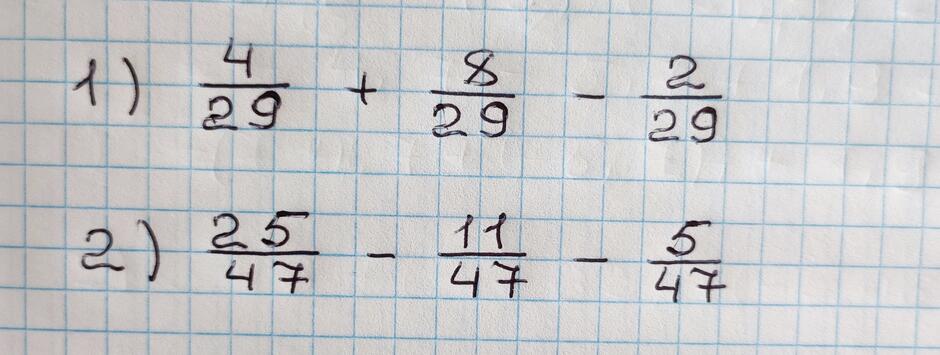 1) 4/29 + 8/29 - 2/29
2) 25/47 - 11/47 - 5/47